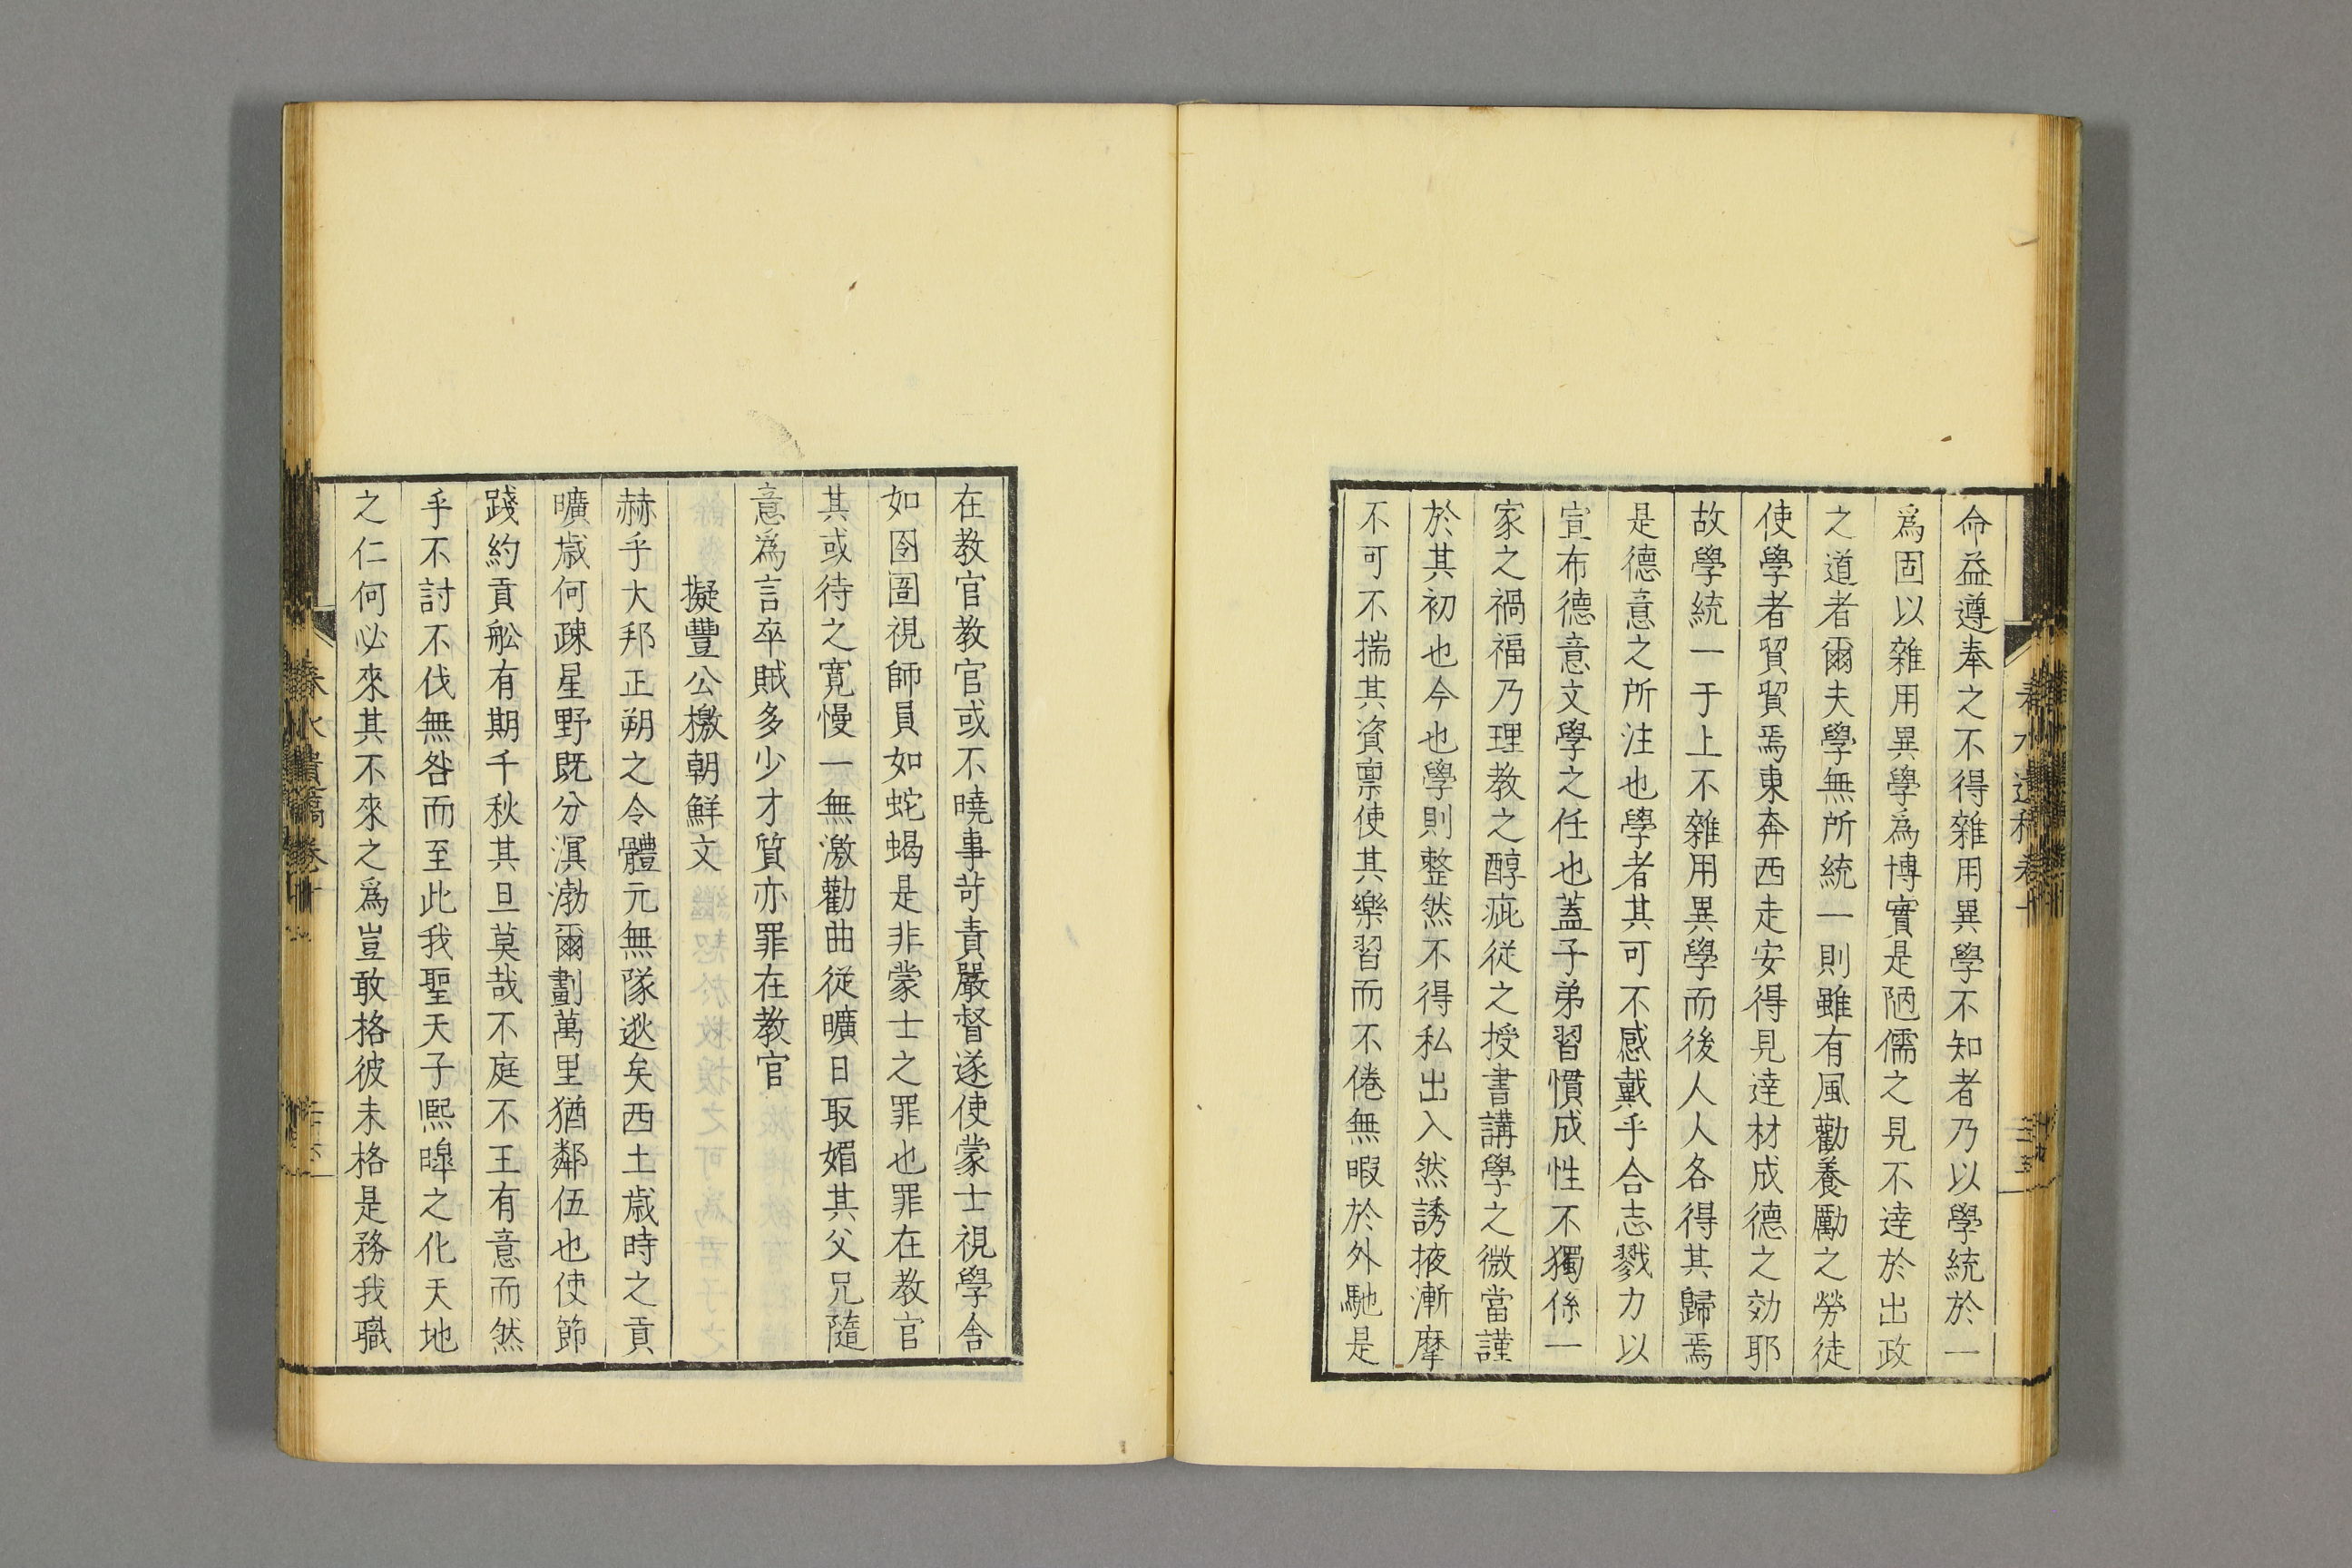 命益遵奉之不得雜用異學不知者乃以學統於一
爲固以雜用異學爲博實是陋儒之見不達於出政
之道者爾夫學無所統一則雖有風勸養勵之勞徒
使學者貿貿焉東奔西走安得見達材成德之効耶
故學統一于上不雜用異學而後人人各得其歸焉
是德意之所注也學者其可不感戴乎合志戮力以
宣布德意文學之任也蓋子弟習慣成性不獨係一
家之禍福乃理教之醇疵從之授書講學之微當謹
於其初也今也學則整然不得私出入然誘掖漸摩
不可不揣其資稟使其樂習而不倦無暇於外馳是
在教官教官或不曉事苛責嚴督遂使蒙士視學舍
如囹圄視師員如蛇蝎是非蒙士之罪也罪在教官
其或待之寬慢一無激勸曲從曠日取媚其父兄隨
意爲言卒賊多少才質亦罪在教官
擬豐公檄朝鮮文
赫乎大邦正朔之令體元無隊逖矣西土歲時之貢
曠歲何疎星野既分溟渤爾劃萬里猶鄰伍也使節
踐約貢舩有期千秋其旦莫哉不庭不王有意而然
乎不討不伐無咎而至此我聖天子熙皥之化天地
之仁何必來其不來之爲豈敢格彼未格是務我職
春水遺稿卷十